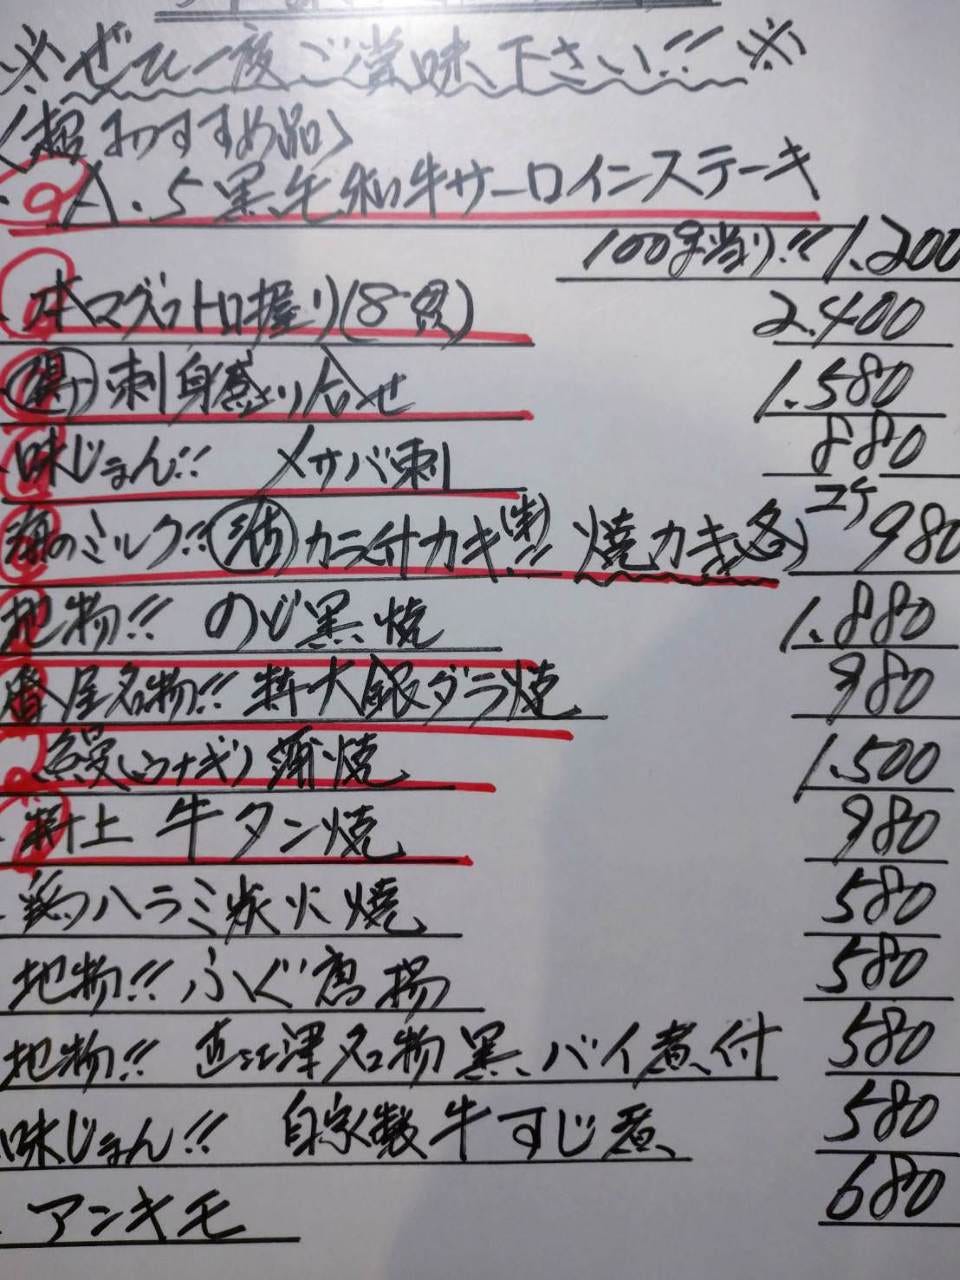 ※ぜひ一度ご賞味下さい!!※
〈超おすすめ品〉
A.5黒毛和牛サーロインステーキ
100g当り!! 1.200
本マグロトロ握り(8貫) 2.400
得 刺身盛り合せ 1.580
味じまん!! メサバ刺 880
海のミルク!! 活 カラ付カキ(刺)!! 焼カキ(各) 2ケ 980
地物!! のど黒焼 1.880
屋名物!! 特大銀ダラ焼 980
鰻(ウナギ)蒲焼 1.500
特上 牛タン焼 980
鶏ハラミ炭火焼 580
地物!! ふぐ唐揚 580
地物!! 直江津名物黒バイ煮付 580
味じまん!! 自家製牛すじ煮 580
アンキモ 680